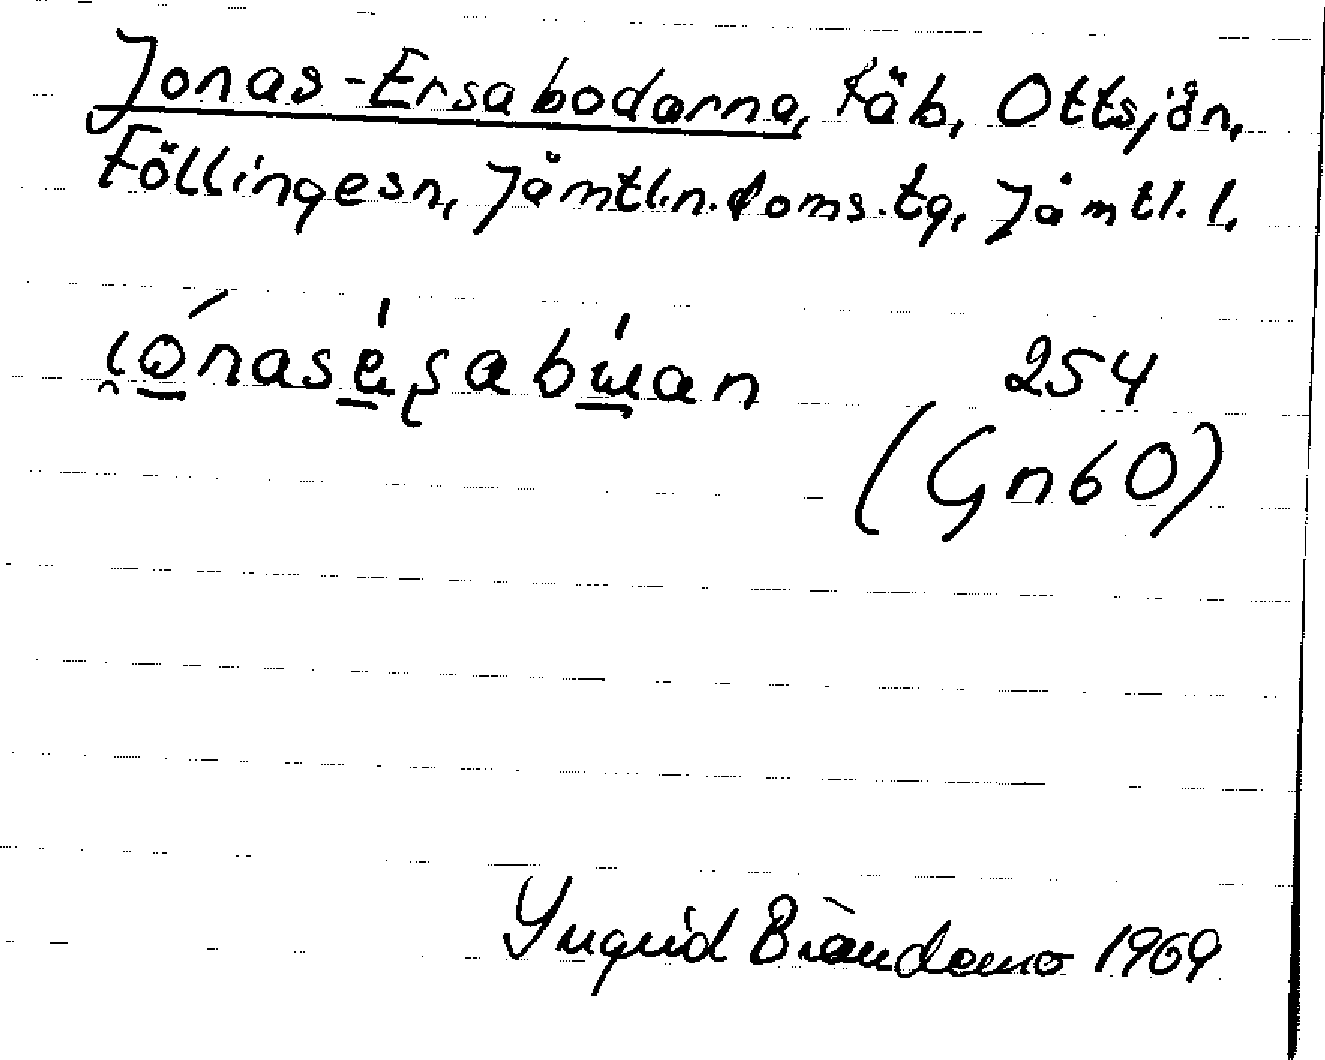 Jonas-Ersabodarna, Fäb, Ottsjön,
Föllingesn, Jämtl.n.doms.tg, Jämtl.l.
254
(Gn60)
Yngrid Brändemo 1969